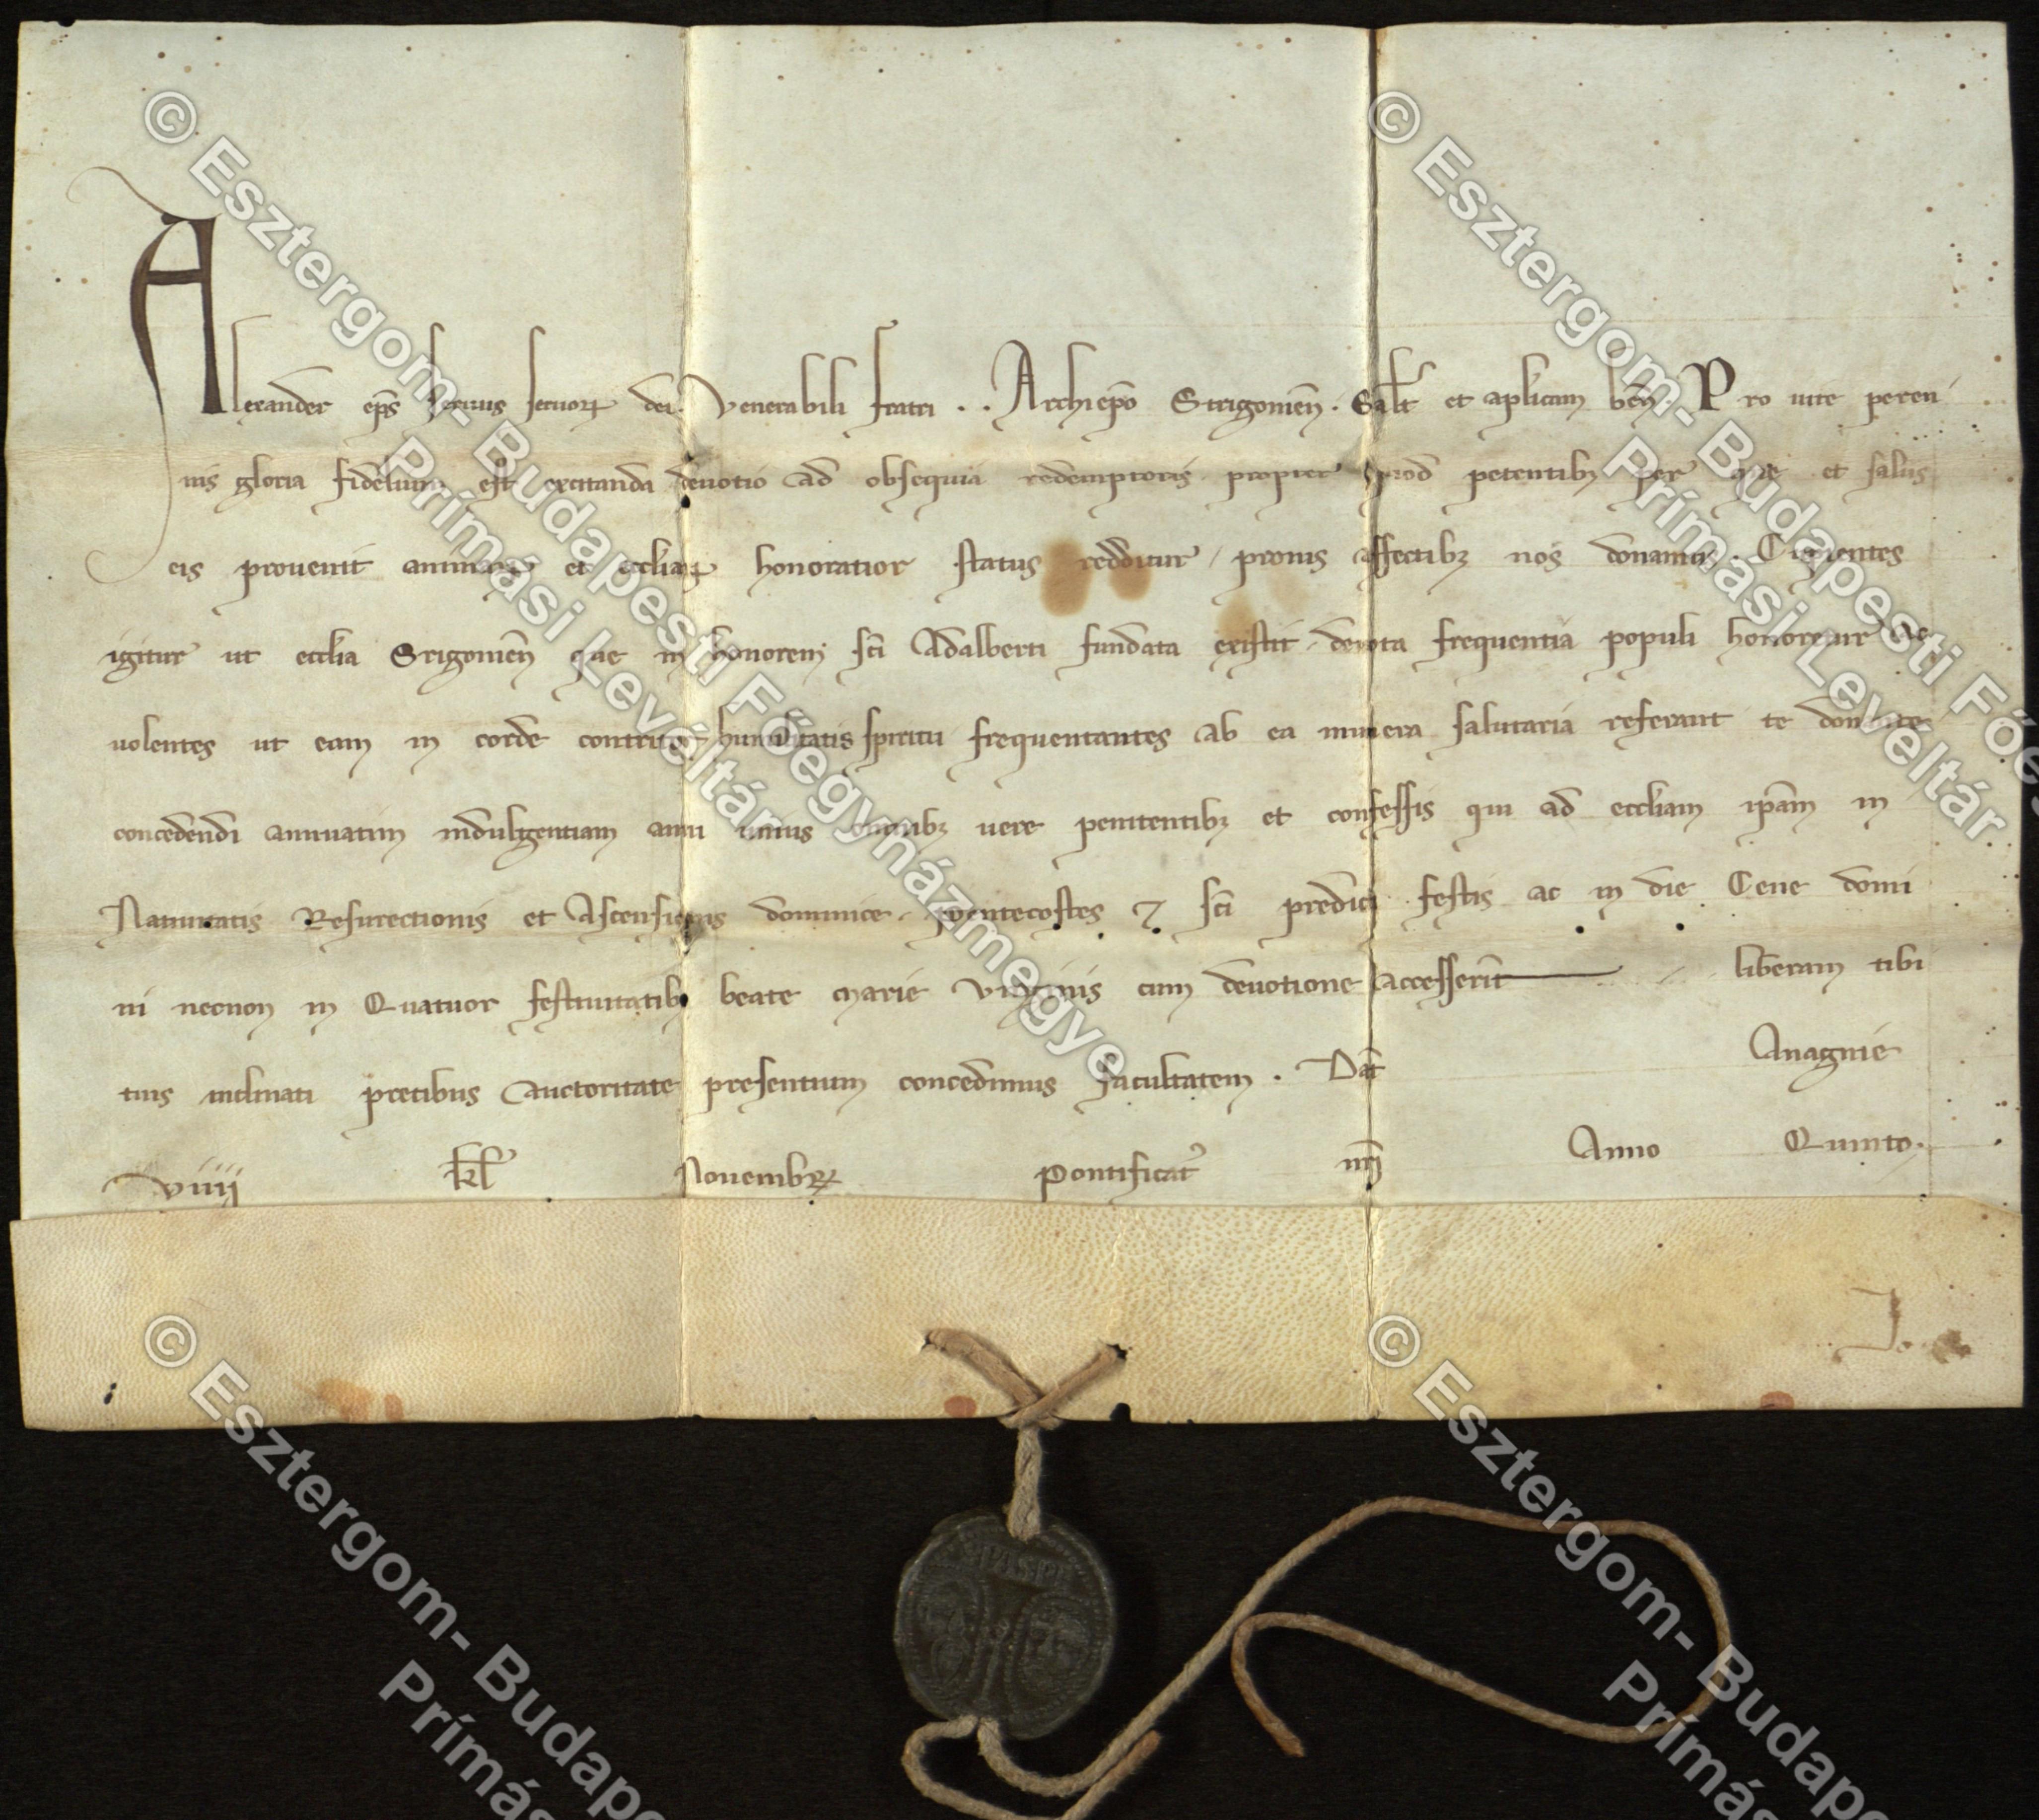 Alexander ep̄s seruus seruoꝝ dei. Venerabili fratri . . Archiep̄o Strigonien̄. Salt̄ et ap̄licam ben̄. Pro uite peren
nis gloria fidelium est excitanda deuotio ad obsequia redemptoris propter quod petentibꝫ per que et salus
eis prouenit animaꝝ et eccl̄iaꝝ honoratior status redditur / pronis affectibꝫ nos donamus. Cupientes
igitur ut eccl̄ia Strigonien̄ que in honorem sc̄i Adalberti fundata existit deuota frequentia populi honoretur ac
uolentes ut eam in corde contrito humilitatis spiritu frequentantes ab ea munera salutaria referant te donandi
concedendi annuatim indulgentiam anni unius omnibꝫ uere penitentibꝫ et confessis qui ad eccl̄iam ip̄am in
Natiuitatis Resurectionis et Ascensionis dominice. Pentecostes ⁊ sc̄i predicti festis ac in die Cene domi
ni necnon in Quatuor festiuitatibꝫ beate Marie Virginis cum deuotione accesserit liberam tibi
tuis inclinati precibus auctoritate presentium concedimus facultatem. Dat̄ Anagnie
viiij kl̄ Nouembrꝝ Pontificat᾽ nr̄i Anno Quinto.
© Esztergom- Budapesti Főegyházmegye
Prímási Levéltár
© Esztergom- Budapesti Főe
Prímási Levéltár
SPASPE
© Esztergom- Budape
Prímás
© Esztergom- Budape
Prímás